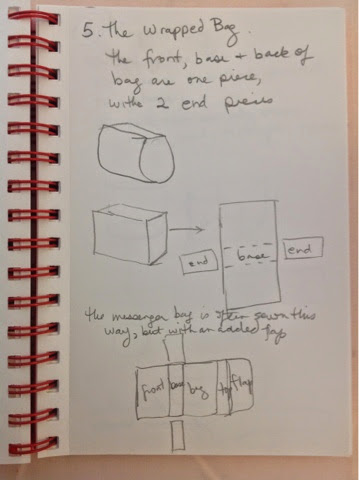 5. The Wrapped Bag.
the front, base + back of
bag are one piece,
with 2 end pieces
end base end
the messenger bag is often sewn this
way, but with an added flap
front base bag top flap